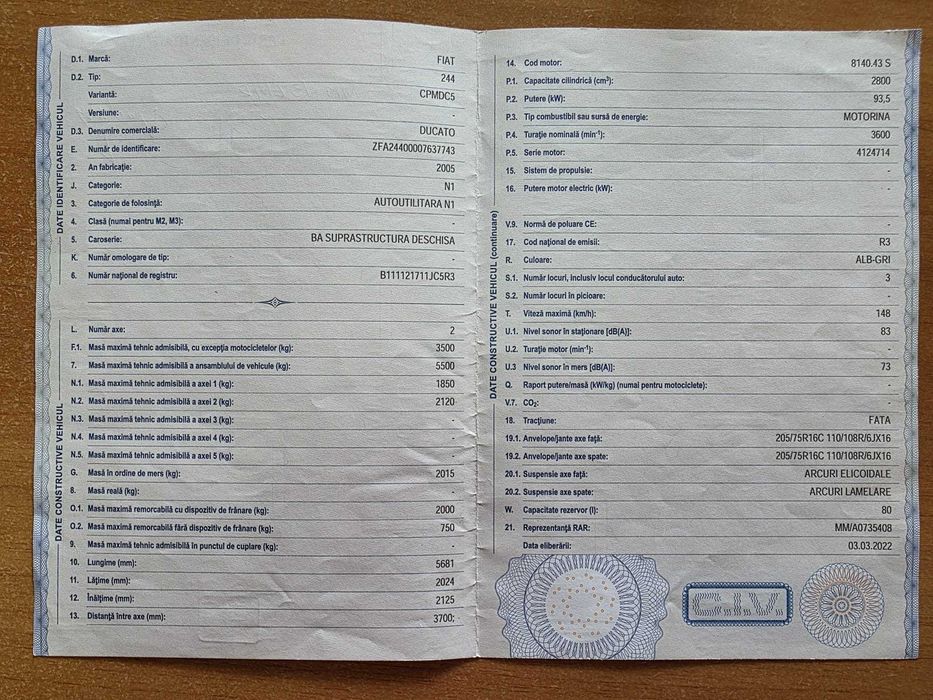 DATE IDENTIFICARE VEHICUL
D.1. Marcă: FIAT
D.2. Tip: 244
Variantă: CPMDC5
Versiune: -
D.3. Denumire comercială: DUCATO
E. Număr de identificare: ZFA24400007637743
2. An fabricație: 2005
J. Categorie: N1
3. Categorie de folosință: AUTOUTILITARA N1
4. Clasă (numai pentru M2, M3): -
5. Caroserie: BA SUPRASTRUCTURA DESCHISA
K. Număr omologare de tip: -
6. Număr național de registru: B111121711JC5R3
DATE CONSTRUCTIVE VEHICUL
L. Număr axe: 2
F.1. Masă maximă tehnic admisibilă, cu excepția motocicletelor (kg): 3500
7. Masă maximă tehnic admisibilă a ansamblului de vehicule (kg): 5500
N.1. Masă maximă tehnic admisibilă a axei 1 (kg): 1850
N.2. Masă maximă tehnic admisibilă a axei 2 (kg): 2120
N.3. Masă maximă tehnic admisibilă a axei 3 (kg): -
N.4. Masă maximă tehnic admisibilă a axei 4 (kg): -
N.5. Masă maximă tehnic admisibilă a axei 5 (kg): -
G. Masă în ordine de mers (kg): 2015
8. Masă reală (kg): -
O.1. Masă maximă remorcabilă cu dispozitiv de frânare (kg): 2000
O.2. Masă maximă remorcabilă fără dispozitiv de frânare (kg): 750
9. Masă maximă tehnic admisibilă în punctul de cuplare (kg): -
10. Lungime (mm): 5681
11. Lățime (mm): 2024
12. Înălțime (mm): 2125
13. Distanță între axe (mm): 3700;
DATE CONSTRUCTIVE VEHICUL (continuare)
14. Cod motor: 8140.43 S
P.1. Capacitate cilindrică (cm³): 2800
P.2. Putere (kW): 93,5
P.3. Tip combustibil sau sursă de energie: MOTORINA
P.4. Turație nominală (min⁻¹): 3600
P.5. Serie motor: 4124714
15. Sistem de propulsie: -
16. Putere motor electric (kW): -
V.9. Normă de poluare CE: -
17. Cod național de emisii: R3
R. Culoare: ALB-GRI
S.1. Număr locuri, inclusiv locul conducătorului auto: 3
S.2. Număr locuri în picioare: -
T. Viteză maximă (km/h): 148
U.1. Nivel sonor în staționare [dB(A)]: 83
U.2. Turație motor (min⁻¹): -
U.3 Nivel sonor în mers [dB(A)]: 73
Q. Raport putere/masă (kW/kg) (numai pentru motociclete): -
V.7. CO₂: -
18. Tracțiune: FATA
19.1. Anvelope/jante axe față: 205/75R16C 110/108R/6JX16
19.2. Anvelope/jante axe spate: 205/75R16C 110/108R/6JX16
20.1. Suspensie axe față: ARCURI ELICOIDALE
20.2. Suspensie axe spate: ARCURI LAMELARE
W. Capacitate rezervor (l): 80
21. Reprezentanță RAR: MM/A0735408
Data eliberării: 03.03.2022
C.I.V.